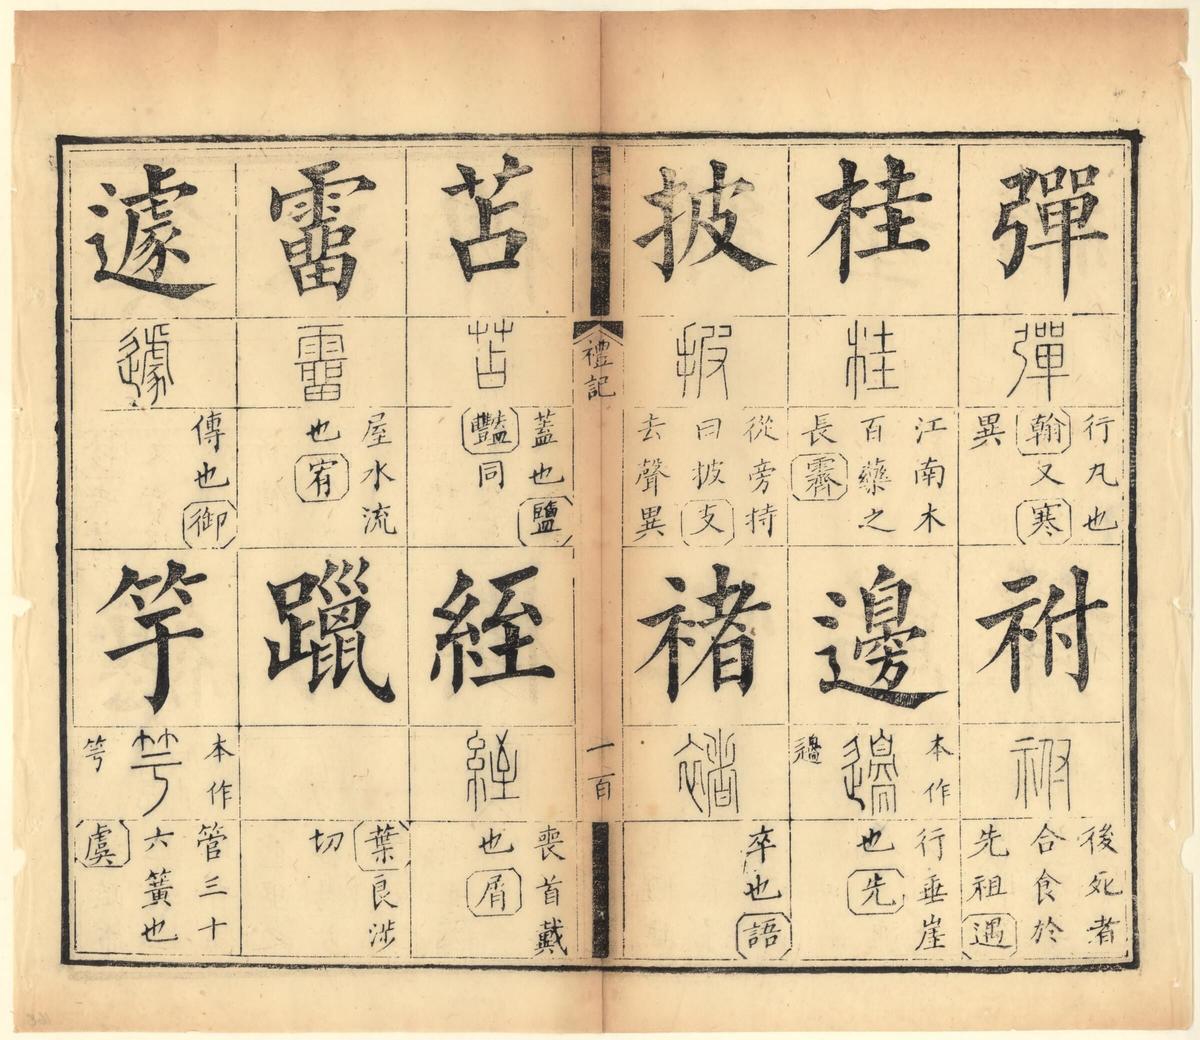 彈
彈
行丸也
翰又寒
異
祔
祔
後死者
合食於
先祖遇
桂
桂
江南木
百藥之
長霽
邊
本作
邊
行垂崖
也先
披
披
從旁持
曰披支
去聲異
褚
褚
卒也語
禮記
一百
苫
苫
蓋也鹽
豔同
絰
絰
喪首戴
也屑
霤
霤
屋水流
也宥
躐
葉良涉
切
遽
遽
傳也御
竽
本作
竽
管三十
六簧也
虞